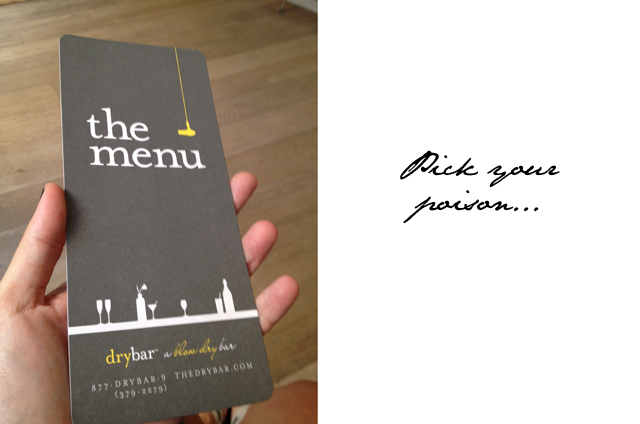 the
menu
drybar™ a blow dry bar
877·DRYBAR·9 THEDRYBAR.COM
(379-2279)
Pick your
poison...